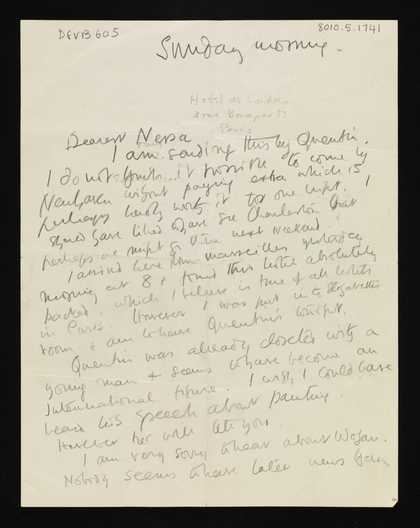 DFVB 605
8010.5.1741
Sunday morning.
Hotel de Londres
3 rue Bonaparte
Paris
Dearest Nessa
I am sending this by Quentin.
I do not find it possible to come by
Newhaven without paying extra which is
perhaps hardly worth it for one night. I
should have liked to have seen Charleston but
perhaps we might go there next weekend.
I arrived here from Marseilles yesterday
morning at 8 & found this hotel absolutely
packed, which I believe is true of all hotels
in Paris. However I was put into Elizabeth's
room & am to have Quentin's tonight.
Quentin was already closeted with a
young man & seems to have become an
International figure. I wish I could have
heard his speech about painting.
However he will tell you.
I am very sorry to hear about Wogan.
Nobody seems to have later news than